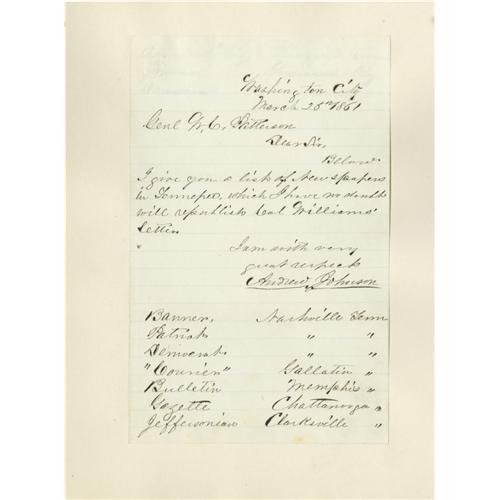 Washington City
March 25th 1861
Genl W. C. Patterson
Dear Sir,
Below
I give you a list of Newspapers
in Tennessee, which I have no doubt
will republish Col Williams'
letter
I am with very
great respect
Andrew Johnson
Banner, Nashville Tenn
Patriot " "
Democrat " "
"Courier" Gallatin "
Bulletin Memphis "
Gazette Chattanooga "
Jeffersonian Clarksville "